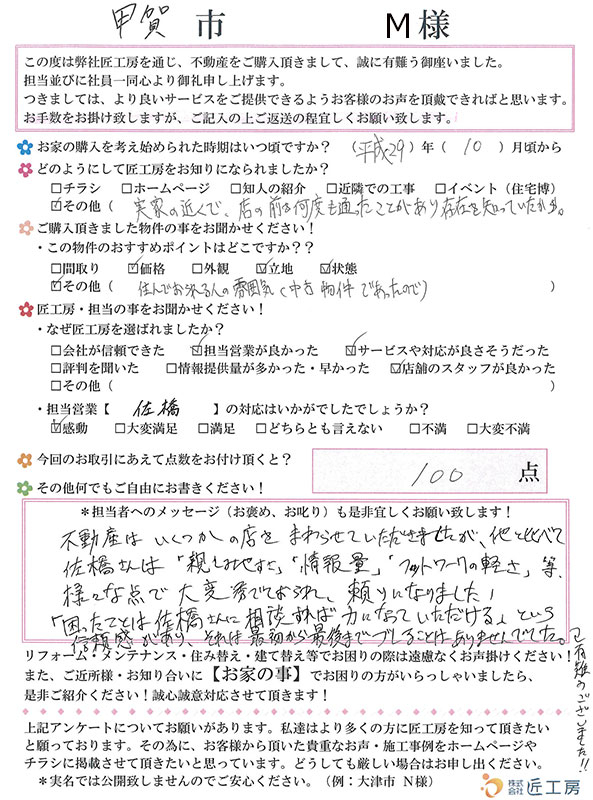 甲賀 市 M様
この度は弊社匠工房を通じ、不動産をご購入頂きまして、誠に有難う御座いました。
担当並びに社員一同心より御礼申し上げます。
つきましては、より良いサービスをご提供できるようお客様のお声を頂戴できればと思います。
お手数をお掛け致しますが、ご記入の上ご返送の程宜しくお願い致します。
お家の購入を考え始められた時期はいつ頃ですか？ (平成29) 年 ( 10 ) 月頃から
どのようにして匠工房をお知りになられましたか？
□チラシ □ホームページ □知人の紹介 □近隣での工事 □イベント（住宅博）
☑その他（ 実家の近くで、店の前を何度も通ったことがあり存在を知っていたから。
ご購入頂きました物件の事をお聞かせください！
・この物件のおすすめポイントはどこですか？？
□間取り ☑価格 □外観 ☑立地 ☑状態
☑その他（ 住んでおられる人の雰囲気（中古物件であったので） ）
匠工房・担当の事をお聞かせください！
・なぜ匠工房を選ばれましたか？
□会社が信頼できた ☑担当営業が良かった ☑サービスや対応が良さそうだった
□評判を聞いた □情報提供量が多かった・早かった ☑店舗のスタッフが良かった
□その他（ ）
・担当営業【 佐橋 】の対応はいかがでしたでしょうか？
☑感動 □大変満足 □満足 □どちらとも言えない □不満 □大変不満
今回のお取引にあえて点数をお付け頂くと？ 100 点
その他何でもご自由にお書きください！
＊担当者へのメッセージ（お褒め、お叱り）も是非宜しくお願い致します！
不動産はいくつかの店をまわらせていただきましたが、他と比べて
佐橋さんは「親しみやすさ」「情報量」「フットワークの軽さ」等、
様々な点で大変秀でておられ、頼りになりました！
「困ったことは佐橋さんに相談すれば力になっていただける」という
信頼感があり、それは最初から最後までブレることはありませんでした。
有難うございました!!
リフォーム・メンテナンス・住み替え・建て替え等でお困りの際は遠慮なくお声掛けください！
また、ご近所様・お知り合いに【お家の事】でお困りの方がいらっしゃいましたら、
是非ご紹介ください！誠心誠意対応させて頂きます！
上記アンケートについてお願いがあります。私達はより多くの方に匠工房を知って頂きたい
と願っております。その為に、お客様から頂いた貴重なお声・施工事例をホームページや
チラシに掲載させて頂きたいと思っています。どうしても厳しい場合はお申し出ください。
＊実名では公開致しませんのでご安心ください。（例：大津市 N様）
株式会社 匠工房